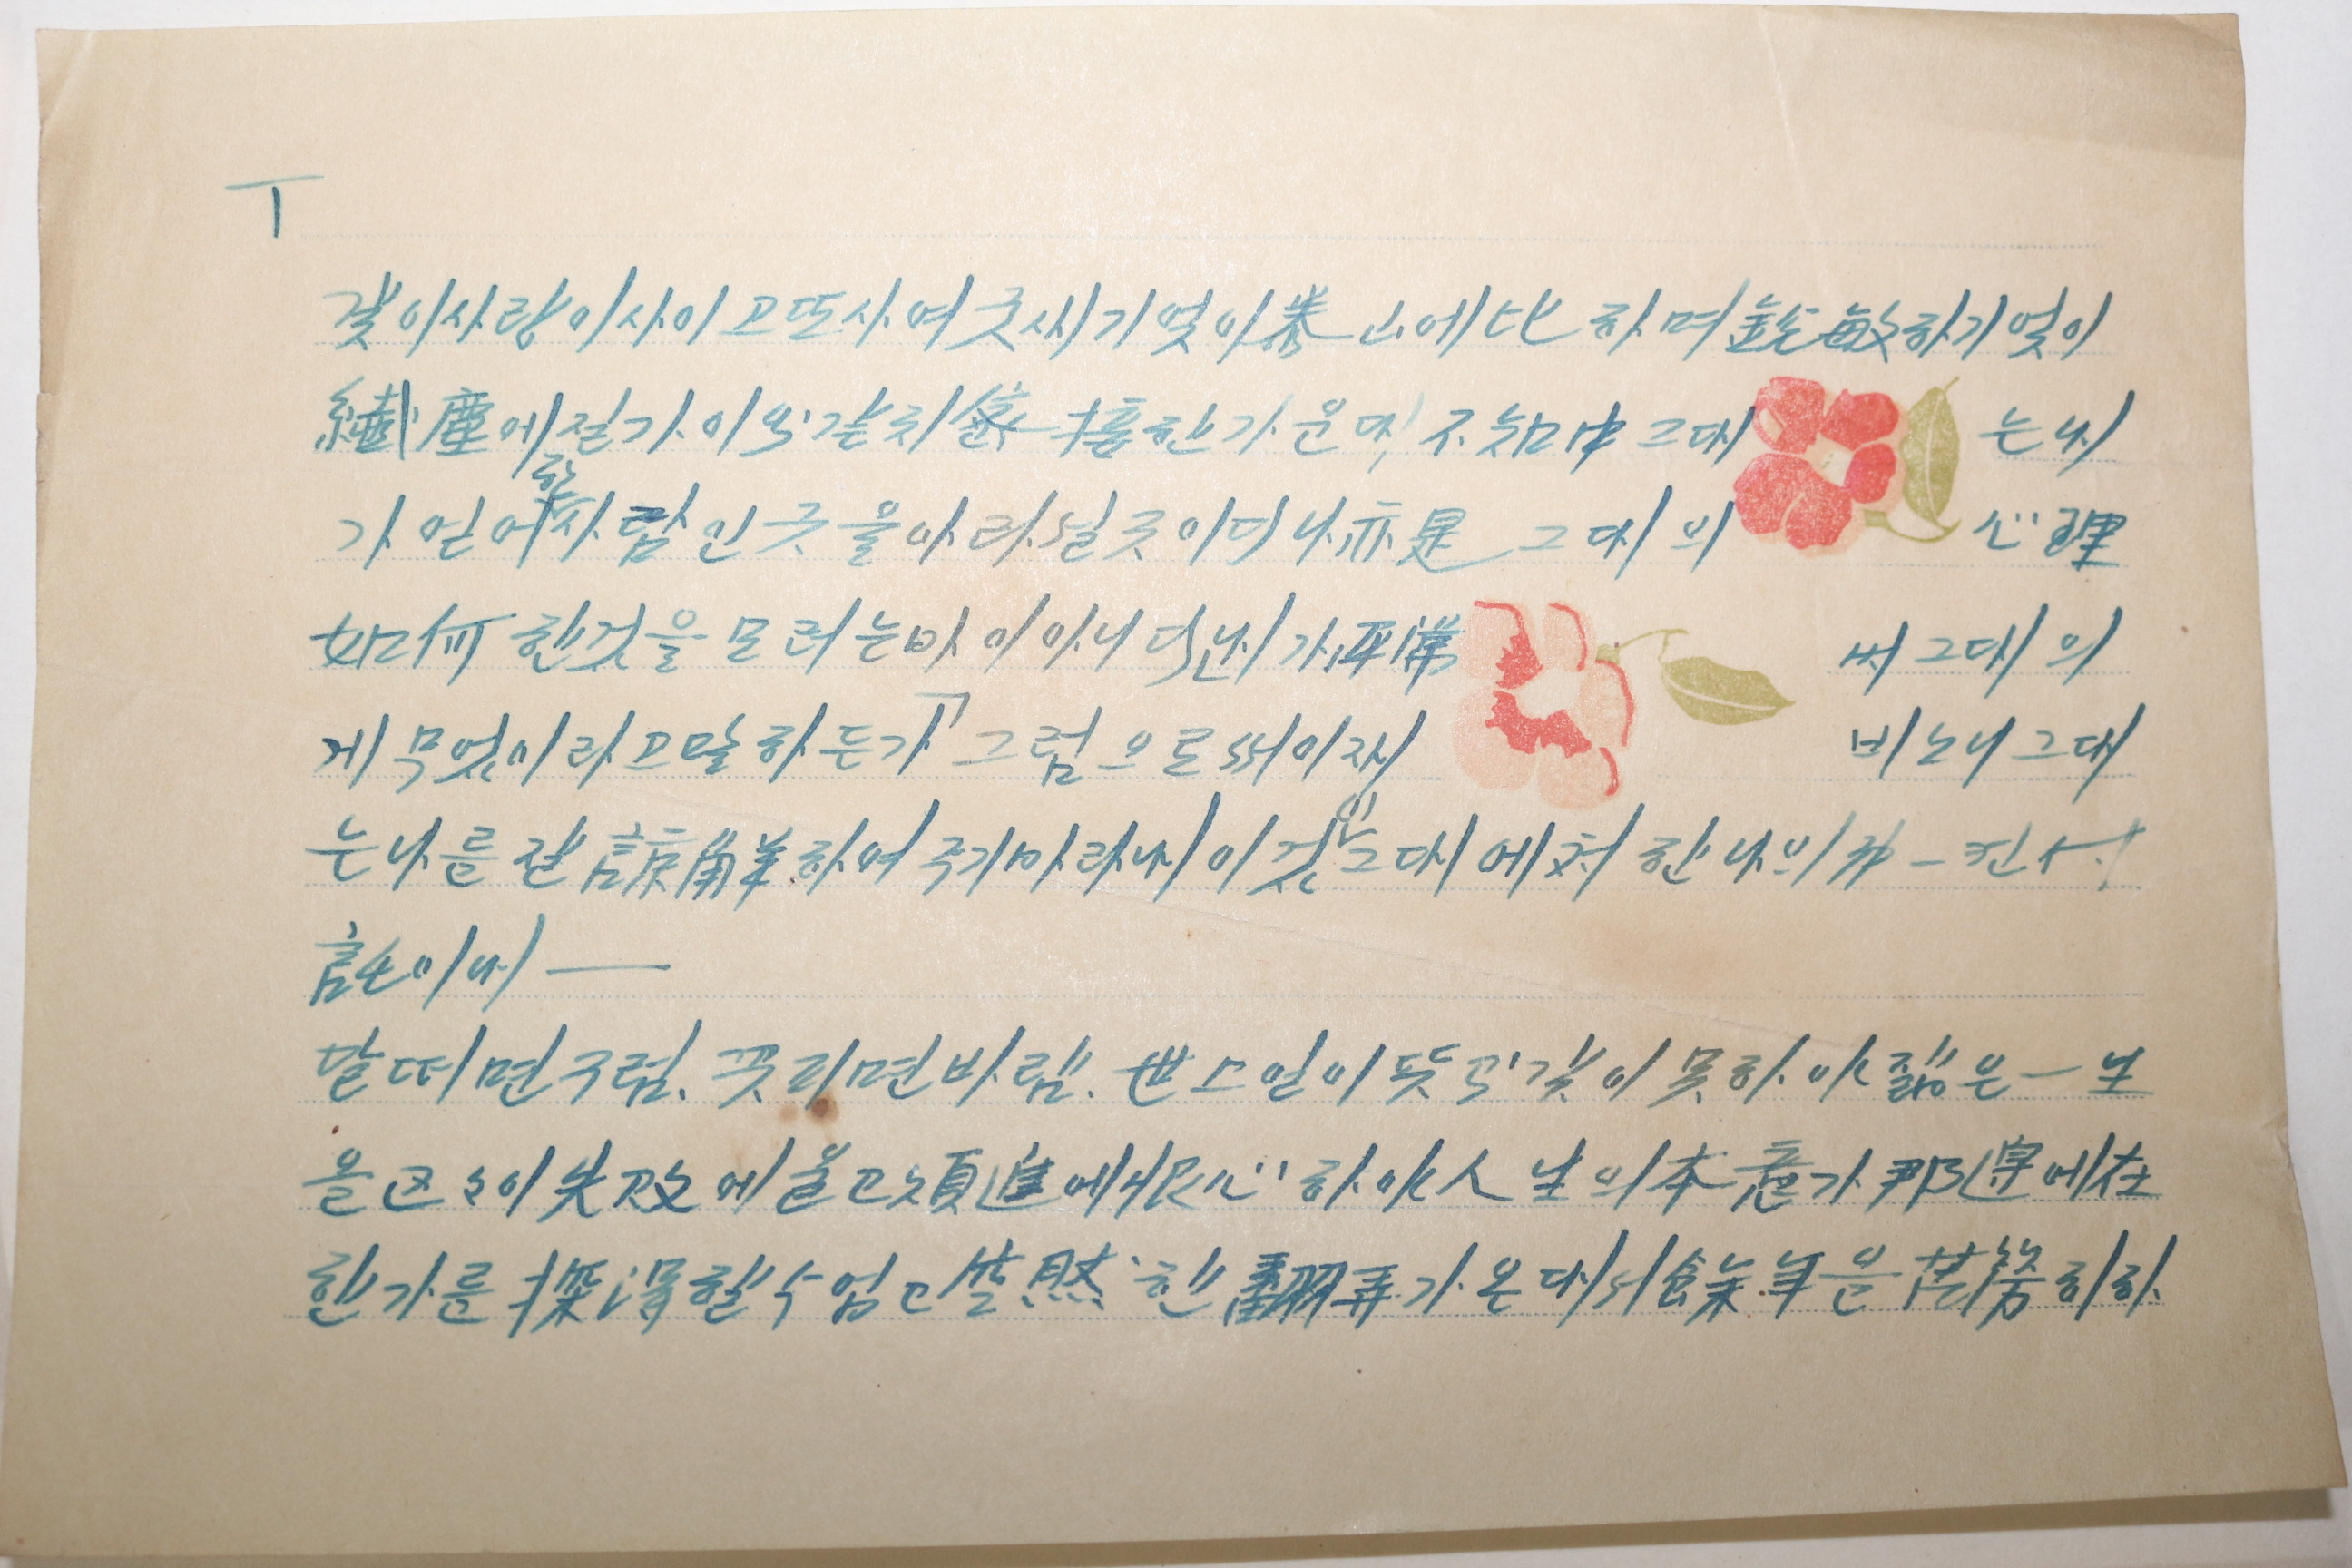 T
갗이사랑이사이고또사여굿세기엇이泰山에比하며銳敏하기엇이
纖塵에질가이와같치 接한가운대, 不知中그대는내
가엇어한사람인굿을아라실굿이며나亦是그대의心理
如何한것을모러는바이아니며내가平常써그대의
게무엇이라고말하든가「그럼으로써이제비노니그대
는나를잘諒解하여주기바라내이것이그대에처한나의 一컨
託이며—
달떠면구럼、꽃피면바람、世上일이뜻과갗이못하야졂은一生
을 이失敗에 고 進에 心하야人生의本意가那邊에在
한가를探得할수업고 然한翻弄가온대서餘年을苦勞히하